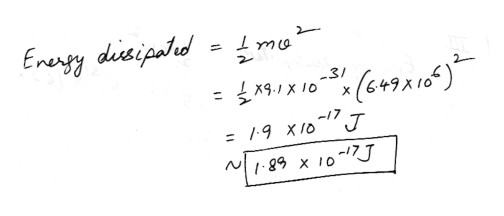 Energy dissipated = 1/2 mv²
= 1/2 × 9.1 × 10⁻³¹ × (6.49 × 10⁶)²
= 1.9 × 10⁻¹⁷ J
~ 1.89 × 10⁻¹⁷ J